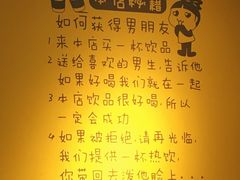 本店妙籍
如何获得男朋友
1 来本店买一杯饮品
2 送给喜欢的男生,告诉他
如果好喝我们就在一起
3 本店饮品很好喝,所以
一定会成功
4 如果被拒绝,请再光临,
我们提供一杯热饮,
你带回去泼他脸上...